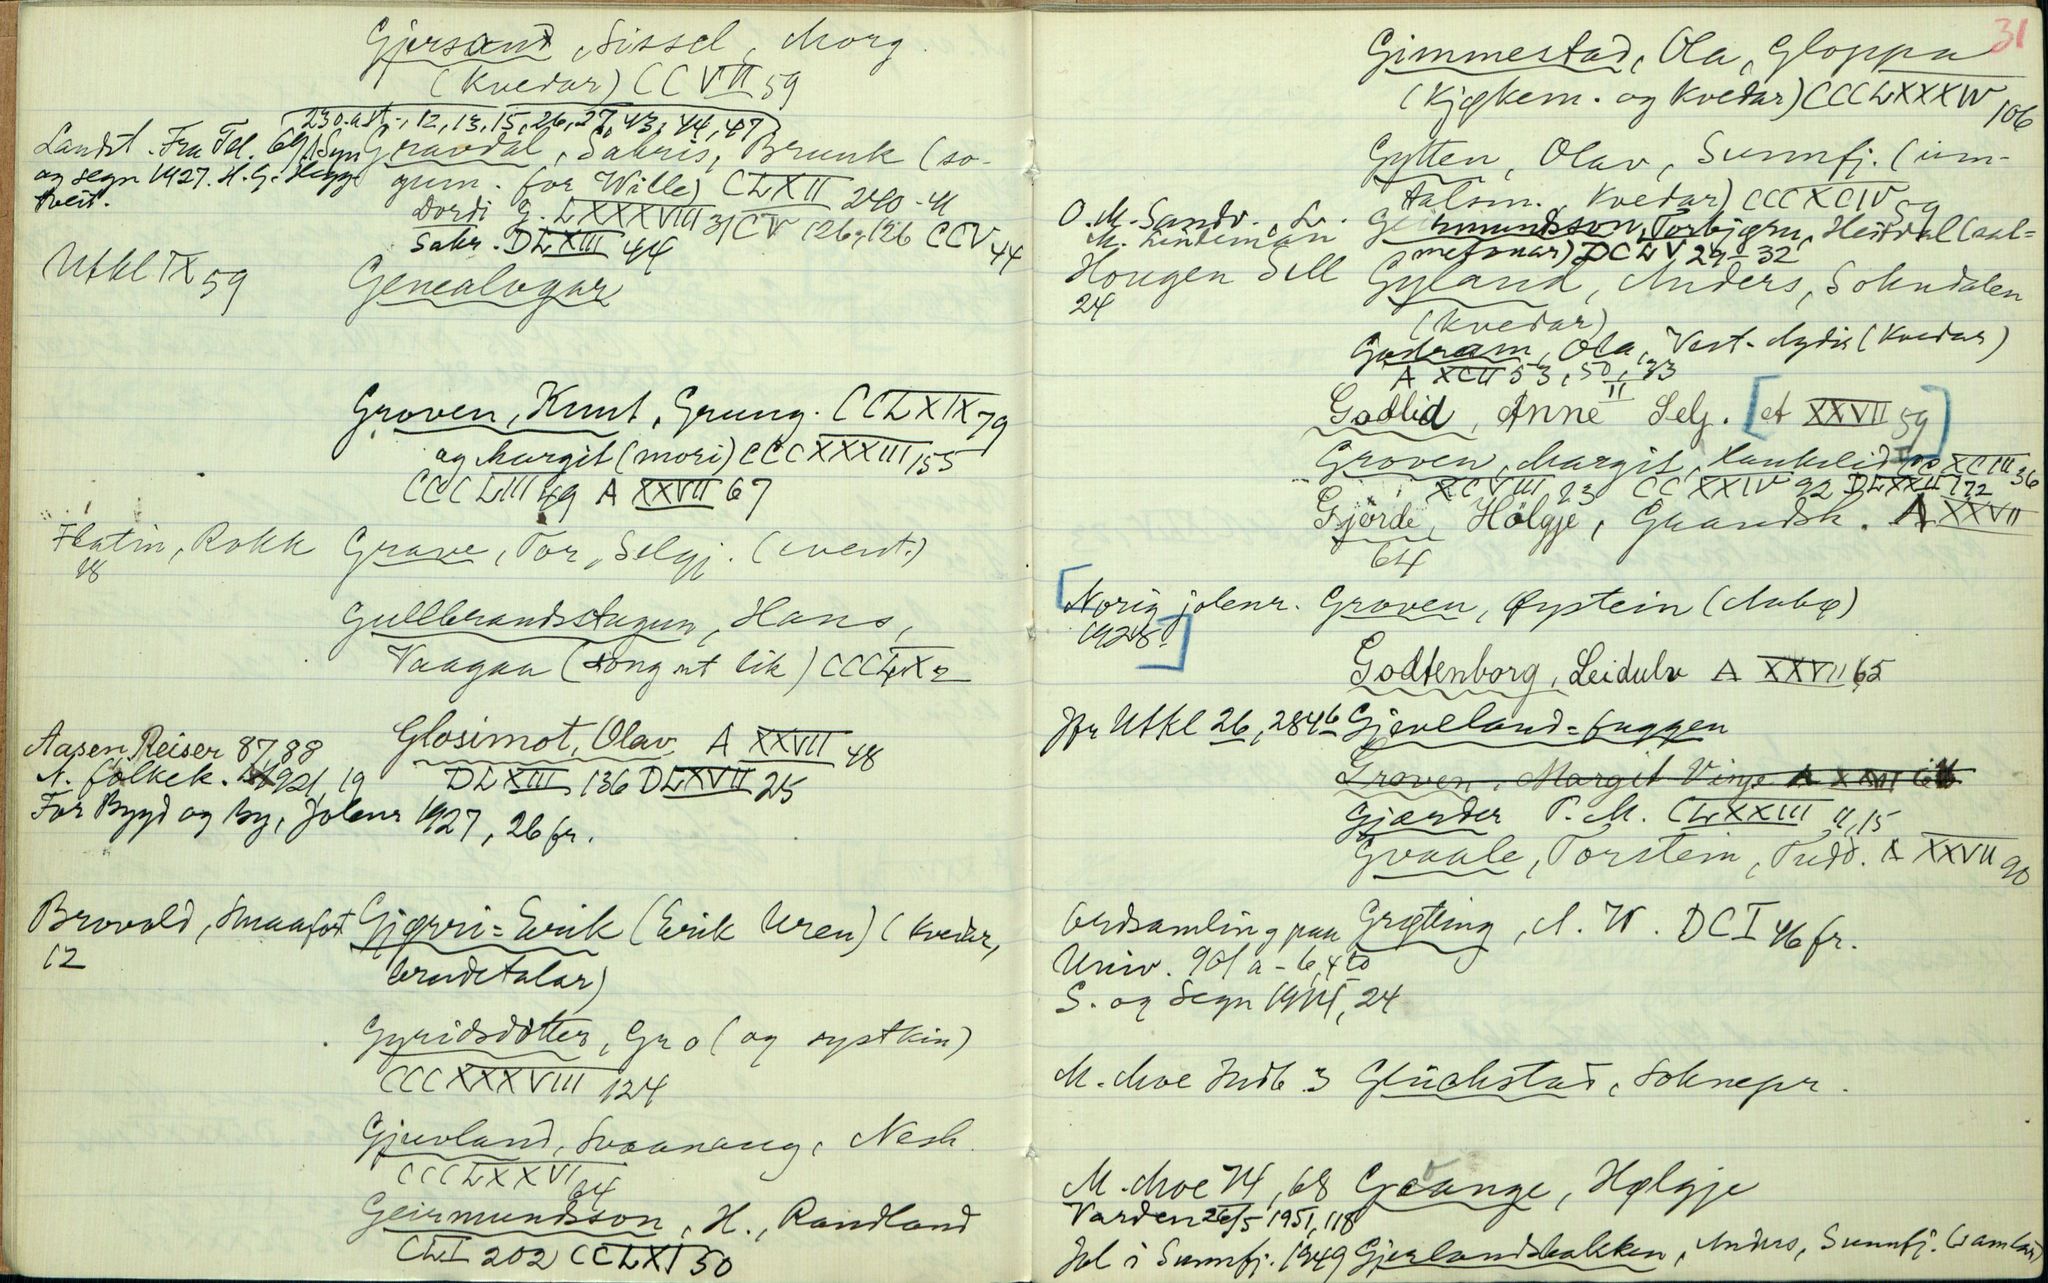 Gjersand, Sissel, Morg.
(Kvedar) CCVII 59
230.ast., 12, 13, 15, 26, 27, 43, 44, 47
Landst. Fra Tel. 69, Syn Gravdal, Sakris, Brunk (so-
og segn 1927. H. G. Hegg gum. for Wille) CLXII 240-41
tveit.
Dordi G. LXXXVIII 31 CV 126, 126 CCV 44
Sakr. DLXIII 44
Utkl IX 59 Genealogar
Groven, Knut, Grung. CCLXIX 79
og Margit (mori) CCCXXXIII 155
CCCLIII 49 A XXVII 67
Flatin, Rokk Grave, Tor, Selgj. (event.)
18
Gullbrandsstugun, Hans,
Vaagaa (song ut lik) CCCLX 2
Aasen, Reiser 87, 88 Glosimot, Olav A XXVII 48
N. folkek. 1921, 19 DLXIII 136 DLXVII 25
For Bygd og By, Jolenr 1927, 26 fr.
Brovold, Smaafort Gjørri-Erik (Erik Uren) (kvedar,
12 brudetalar)
Gyridsdotter, Gro (og systkin)
CCCXXXVIII 124
Gjuvland, Svaanaug, Nesh.
CCCLXXVI 64
Geirmundsson, H., Randland
CLI 202 CCLXI 50
31
Gimmestad, Ola, Gloppa
(Kjøkem. og Kvedar) CCCLXXXIV 106
Gytten, Olav, Sunnfj. (um-
talsm. Kvedar) CCCXCIV 59
O. M. Sandv., L. mundsson, Torbjørn, Heidal (sal-
M. Lindeman mesonar) DCLV 29-32
Hougen Sell Gyland, Anders, Sokndalen
24 (kvedar)
Gudram, Ola, Vest-Agder (Kvedar)
A XCII 53, 50, 33
II
Godlid, Anne Selj. [A XXVII 59]
Groven, Margit, XCIII 36
XCVIII 23 CCXXIV 92 DLXXII 172
Gjørde, Hølgje, Graandsh. A XXVII
64
[Norig jolenr. Groven, Øystein (Aabø)
1928]
Godtenborg, Leidulv A XXVII 65
Jfr Utkl 26, 284 Gjeveland-fuggen
Groven, Margit Vinje A XXVII 66
Gjærder P. M. CLXXIII 11, 15
Gvaale, Torstein, Tudd. A XXVII 90
Ordsamling paa Grøtting, A. W. DCI 46 fr.
Univ. 901 a-b, 4to
S. og Segn 1914, 24
M. Moe Indb. 3 Glückstad, Soknepr.
M. Moe 74, 68 Graange, Hølgje
Varden 26/5 1951, 118
Jol i Sunnfj. 1949 Gjerlandsbakken, Anders, Sunnfj. (samlar)